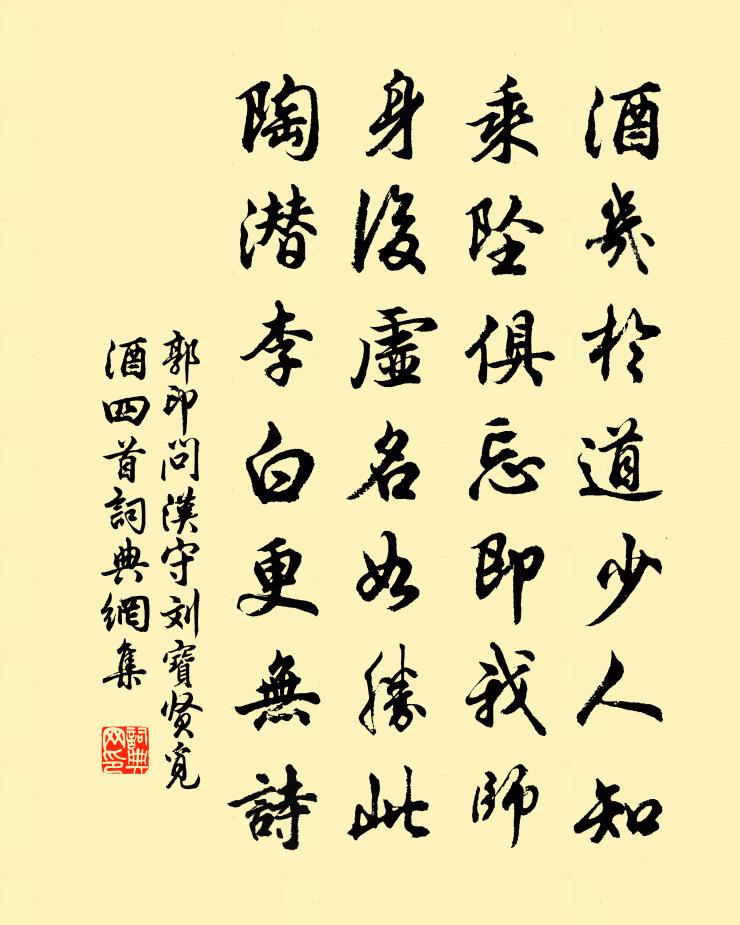 酒幾於道少人知
乘坠俱忘即我師
身後虛名如勝此
陶潜李白更無詩
郭印問漢守刘寶贤覓
酒四首詞典網集
詞典
网印